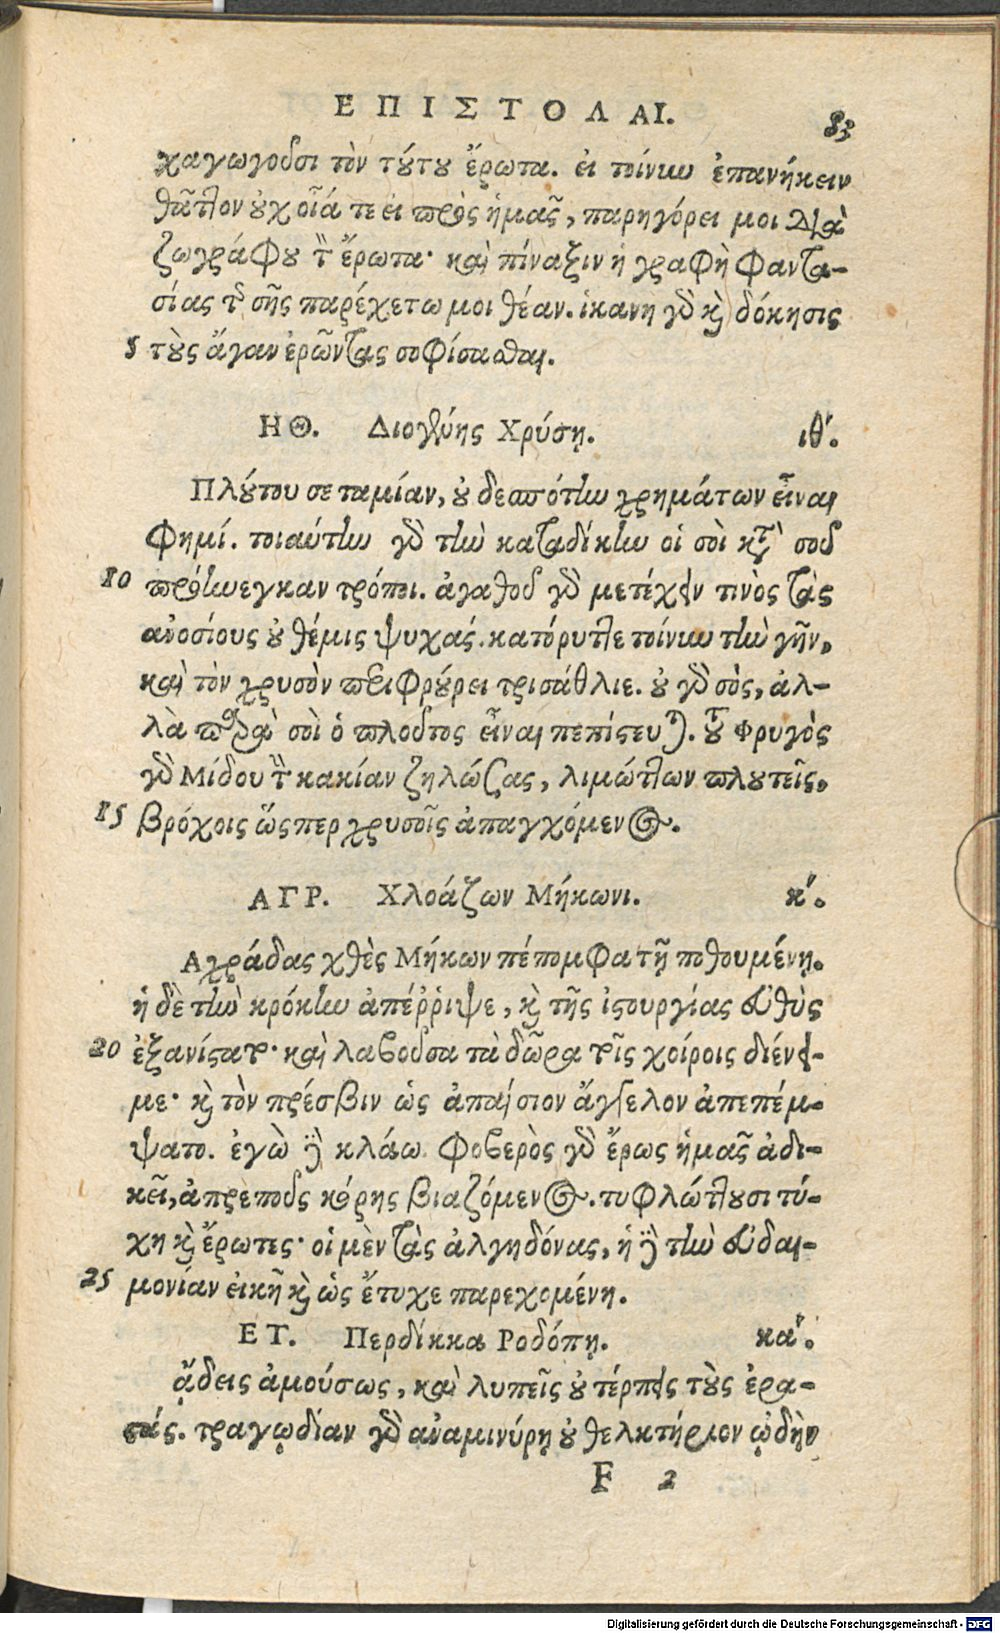 ΕΠΙΣΤΟΛΑΙ. 83
χαγωγοῦσι τὸν τούτου ἔρωτα. εἰ τοίνυν ἐπανήκειν
θᾶττον οὐχ οἷά τε εἶ πρὸς ἡμᾶς, παρηγόρει μοι διὰ
ζωγράφου τὸν ἔρωτα· καὶ πίναξιν ἡ γραφὴ φαντα-
σίας τῆς σῆς παρέχετω μοι θέαν. ἱκανη γὰρ καὶ δόκησις
5 τοὺς ἄγαν ἐρῶντας σοφίσασθαι.
ΗΘ. Διογένης Χρύσῃ. ιθ'.
Πλούτου σε ταμίαν, οὐ δεσπότην χρημάτων εἶναι
φημί. τοιαύτην γὰρ τὴν καταδίκην οἱ σοὶ κατὰ σοῦ
10 προήνεγκαν τρόποι. ἀγαθοῦ γὰρ μετέχειν τινὸς τὰς
ἀνοσίους οὐ θέμις ψυχάς. κατόρυττε τοίνυν τὴν γῆν,
καὶ τὸν χρυσὸν περιφρούρει τρισάθλιε. οὐ γὰρ σὸς, ἀλ-
λὰ παρὰ σοὶ ὁ πλοῦτος εἶναι πεπίστευται. τοῦ Φρυγὸς
γὰρ Μίδου τὴν κακίαν ζηλώσας, λιμώττων πλουτεῖς,
15 βρόχοις ὥσπερ χρυσοῖς ἀπαγχόμενος.
ΑΓΡ. Χλοάζων Μήκωνι. κ'.
Αχράδας χθὲς Μήκων πέπομφα τῇ ποθουμένῃ.
ἡ δὲ τὴν κρόκην ἀπέῤῥιψε, καὶ τῆς ἱστουργίας εὐθὺς
20 ἐξανίσταται· καὶ λαβοῦσα τὰ δῶρα τοῖς χοίροις διένει-
με· καὶ τὸν πρέσβιν ὡς ἀπαίσιον ἄγγελον ἀπεπέμ-
ψατο. ἐγὼ δὲ κλάω. φοβερὸς γὰρ ἔρως ἡμᾶς ἀδι-
κεῖ, ἀπρεποῦς κόρης βιαζόμενος. τυφλώττουσι τύ-
χη καὶ ἔρωτες· οἱ μὲν τὰς ἀλγηδόνας, ἡ δὲ τὴν εὐδαι-
25 μονίαν εἰκῆ καὶ ὡς ἔτυχε παρεχομένη.
ΕΤ. Περδίκκα Ροδόπῃ. κα'.
ᾄδεις ἀμούσως, καὶ λυπεῖς οὐ τέρπεις τοὺς ἐρα-
στάς. τραγῳδίαν γὰρ ἀναμινύρῃ οὐ θελκτήριον ᾠδὴν
F 2
Digitalisierung gefördert durch die Deutsche Forschungsgemeinschaft - DFG